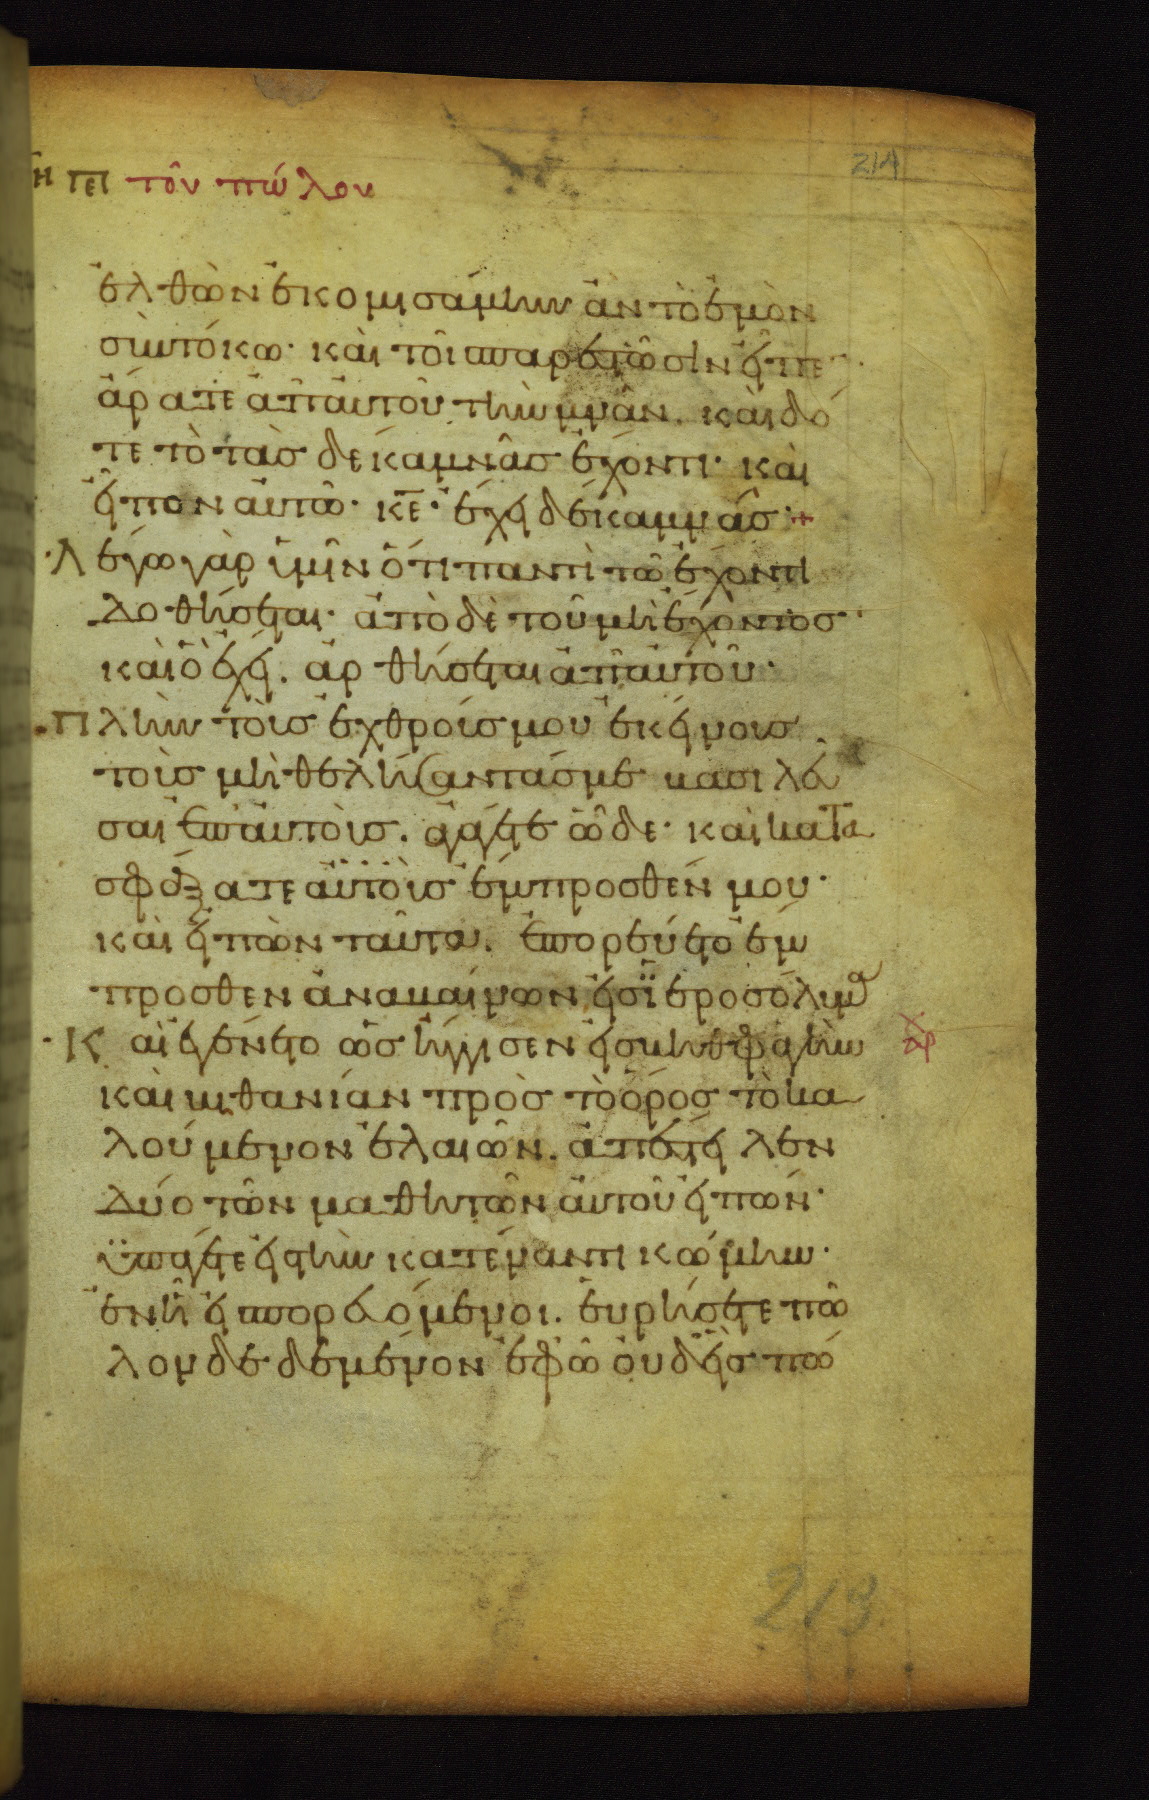 214
ξη περὶ τὸν πώλου
ἐλθὼν ἐκομισάμην ἂν τὸ ἐμὸν
σὺν τόκω· καὶ τοῖ παρεστῶσιν εἶπε·
ἄρατε ἀπ αὐτοῦ τὴν μνᾶν. καὶ δό
τε τὸ τὰσ δέκα μνᾶσ ἔχοντι· καὶ
εἶπον αὐτῶ· κε̅· ἔχει δέκα μνᾶσ· +
Λέγω γὰρ ὑμῖν ὅτι παντὶ τῶ ἔχοντι
δοθήσεται· ἀπὸ δὲ τοῦ μὴ ἔχοντοσ
καὶ ὃ ἔχει. ἀρθήσεται ἀπ αὐτοῦ·
Πλὴν τοὺσ ἐχθρούσ μου ἐκείνουσ
τοὺσ μὴ θελήσαντάσ με βασιλεῦ
σαι ἐπ αὐτοὺσ. ἀγάγετε ὧδε· καὶ κατα
σφάξατε αὐτοὺσ ἔμπροσθέν μου·
καὶ εἰπὼν ταῦτα. ἐπορεύετο ἔμ
προσθεν ἀναβαίνων εἰσ ϊεροσόλυμα
Καὶ ἐγένετο ὡσ ἤγγισεν εἰσ βηθφαγὴν
καὶ βηθανίαν πρὸσ τὸ ὄροσ τὸ κα
λούμενον ἐλαιῶν. ἀπέστειλεν
δύο τῶν μαθητῶν αὐτοῦ εἰπών·
ϋπάγετε εἰσ τὴν κατέναντι κώμην·
ἐν ἧ εἰσπορευόμενοι. εὑρήσετε πῶ
λον δεδεμένον ἐφ ὧ οὐδεὶσ πώ
213